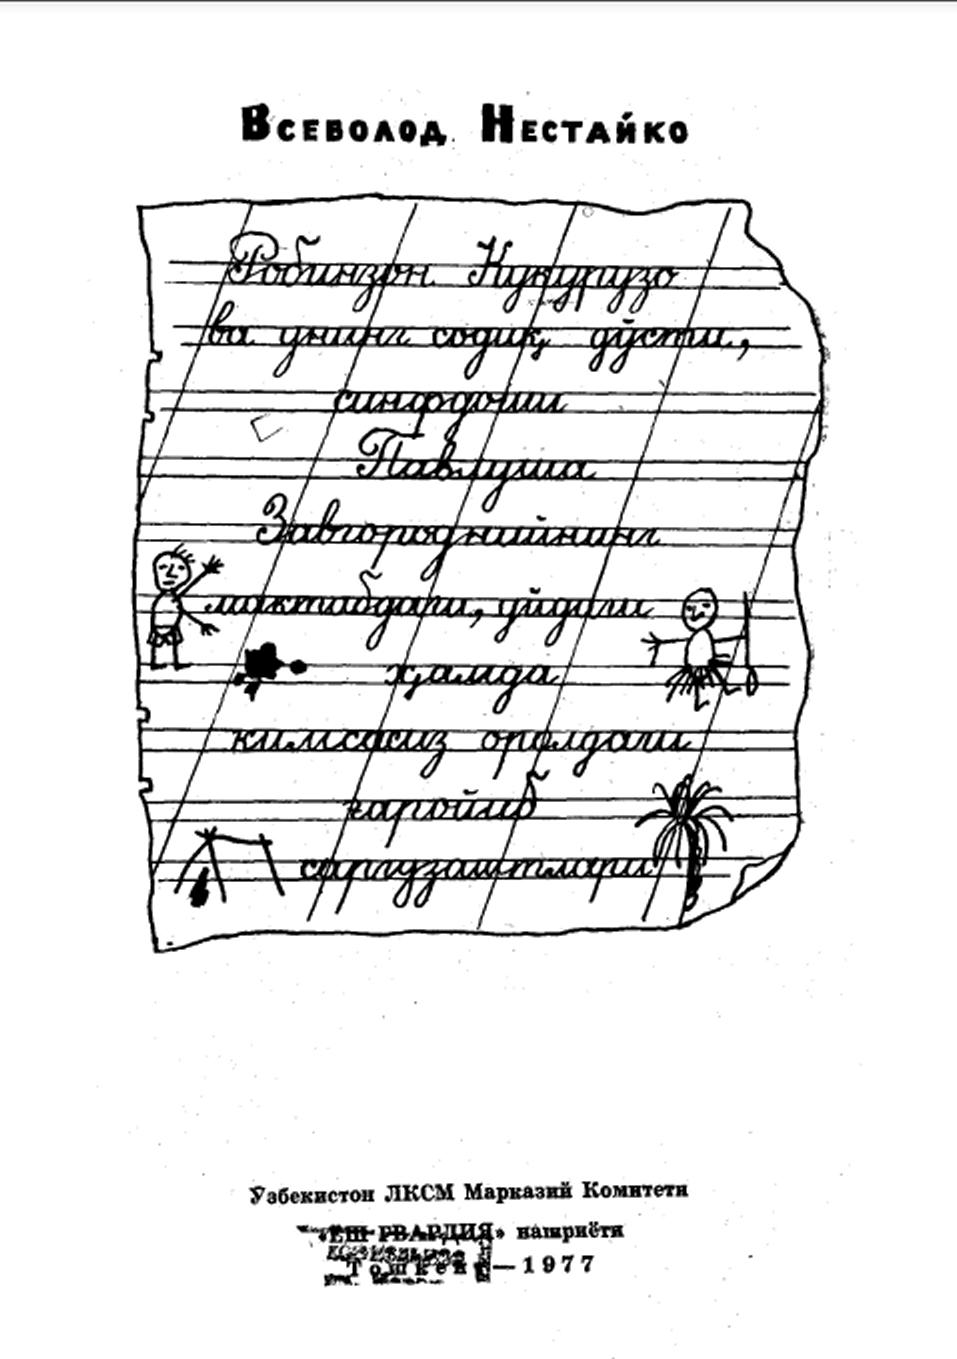 Всеволод Нестайко
Робинзон Кукурузо
ва унинг содиқ дўсти,
синфдоши
Павлуша
Завгороднийнинг
мактабдаги, уйдаги
ҳамда
кимсасиз оролдаги
ғаройиб
саргузаштлари
Узбекистон ЛКСМ Марказий Комитети
«ЕШ ГВАРДИЯ» нашриёти
Тошкент—1977